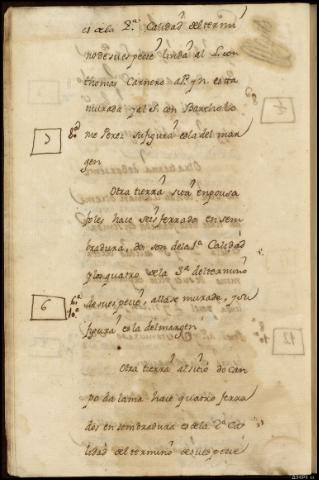 es de la 2ª Calidad del termi
no de su espeçie linda al L. con
thomas Carnero al P. y N. esta
murada y al S. con Barthelo
me Perez su figura es la del mar
gen
5
Otra tierra sita en pousa
foles hace seis ferrados en sem
bradura, dos son de la 1ª Calidad
y los quatro de la 3ª del termino
6
de su espeçie, allase murada, y su
figura es la del margen
Otra tierra al sitio do can
po da lama hace quatro ferra
dos en sembradura es de la 2ª Ca
lidad del termino de su espeçie